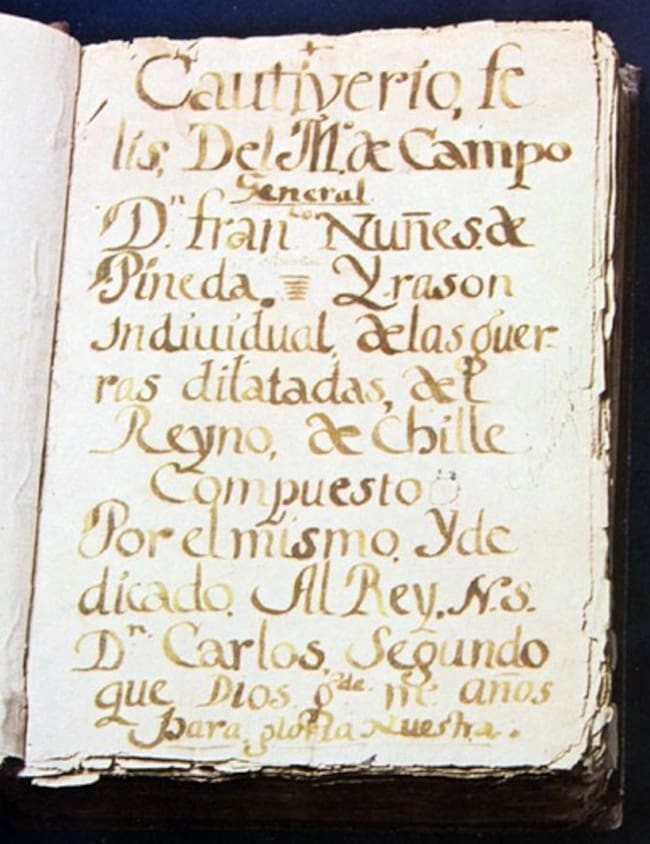 Cautiverio, fe
lis, Del M.º de Campo
General
D.ⁿ fran.ᶜᵒ Nuñes de
Pineda. Y rason
Indiuidual, delas guer-
ras dilatadas, del
Reyno, de Chille
Compuesto
Por el mismo. Y de
dicado. Al Rey. N. s.
Dⁿ Carlos, Segundo
que Dios g.ᵈᵉ m.ˢ años
para gloria Nuestra.